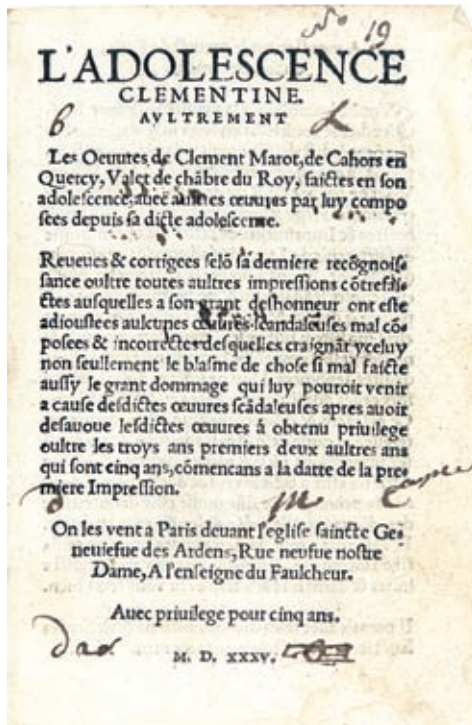 No 19
L'ADOLESCENCE
CLEMENTINE.
AVLTREMENT
Les Oeuures de Clement Marot, de Cahors en
Quercy, Valet de châbre du Roy, faictes en son
adolescence, auec aultres œuures par luy compo
sees depuis sa dicte adolescence.
Reueues & corrigees selõ sa derniere recõgnois-
sance oultre toutes aultres impressions cõtrefai-
ctes ausquelles a son grant deshonneur ont este
adioustees aulcunes œuures scandaleuses mal cõ-
posees & incorrectes desquelles craignãt yceluy
non seullement le blasme de chose si mal faicte
aussy le grant dommage qui luy pouroit venir
a cause desdictes œuures scãdaleuses apres auoir
desauoue lesdictes œuures â obtenu priuilege
oultre les troys ans premiers deux aultres ans
qui sont cinq ans, cõmencans a la datte de la pre-
miere Impression.
On les vent a Paris deuant l'eglise saincte Ge-
neuiefue des Ardens, Rue neufue nostre
Dame, A l'enseigne du Faulcheur.
Auec priuilege pour cinq ans.
M. D. XXXV.